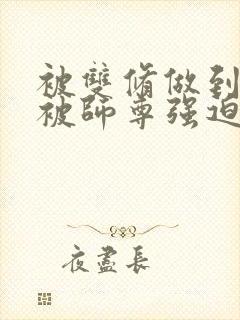 被雙脩做到
被師尊强迫
夜盡長